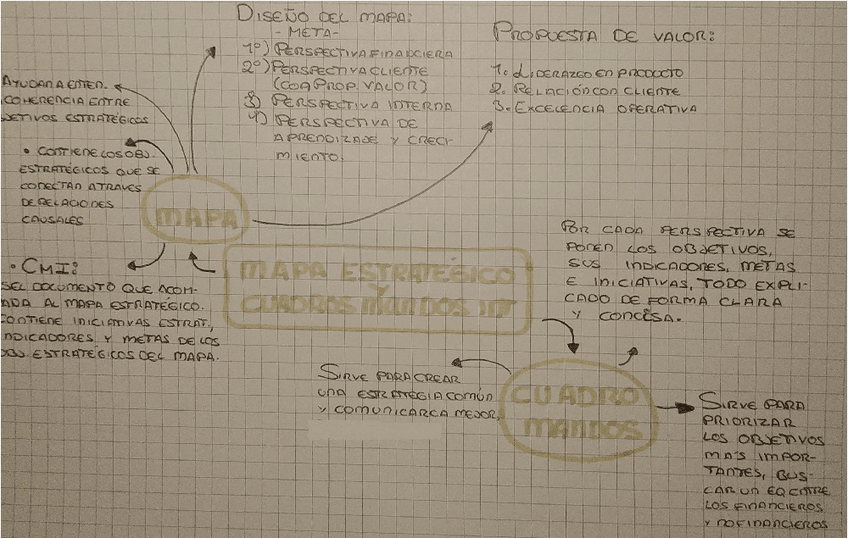 DISEÑO DEL MAPA:
- META -
1º) PERSPECTIVA FINANCIERA
2º) PERSPECTIVA CLIENTE
(COA PROP. VALOR)
3) PERSPECTIVA INTERNA
4) PERSPECTIVA DE
APRENDIZADE Y CRECI-
MIENTO.
PROPUESTA DE VALOR:
1. LIDERAZGO EN PRODUCTO
2. RELACIÓN CON CLIENTE
3. EXCELENCIA OPERATIVA
AYUDAN A ENTEN.
COHERENCIA ENTRE
JETIVOS ESTRATÉGICOS
• CONTIENE LOS OBJ.
ESTRATÉGICOS QUE SE
CONECTAN A TRAVES
DE RELACIONES
CAUSALES
MAPA
• CMI:
SEL DOCUMENTO QUE ACOM-
ÑADA AL MAPA ESTRATÉGICO.
CONTIENE INICIATIVAS ESTRAT.,
INDICADORES Y METAS DE LOS
OBJ. ESTRATÉGICOS DEL MAPA.
MAPA ESTRATÉGICO
Y
CUADROS MANDOS INT
POR CADA PERSPECTIVA SE
PONEN LOS OBJETIVOS,
SUS INDICADORES, METAS
E INICIATIVAS, TODO EXPLI-
CADO DE FORMA CLARA
Y CONCESA.
SIRVE PARA CREAR
UNA ESTRATÉGIA COMÚN
Y COMUNICARCA MEJOR,
CUADRO
MANDOS
SIRVE PARA
PRIORIZAR
LOS OBJETIVOS
MAS IMPOR-
TANTES, BUS-
CAR UN EQ ENTRE
LOS FINANCIEROS
Y NO FINANCIEROS